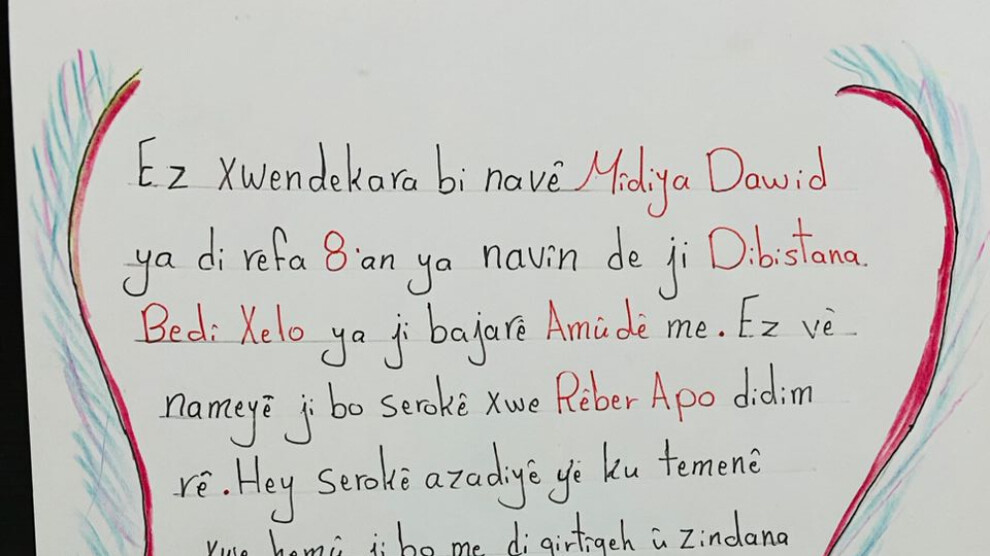 Ez xwendekara bi navê Mîdiya Dawid
ya di refa 8'an ya navîn de ji Dibistana
Bedî Xelo ya ji bajarê Amûdê me. Ez vê
nameyê ji bo serokê xwe Rêber Apo didim
rê. Hey serokê azadiyê yê ku temenê
xwe hemû ji bo me di girtîgeh û zindana